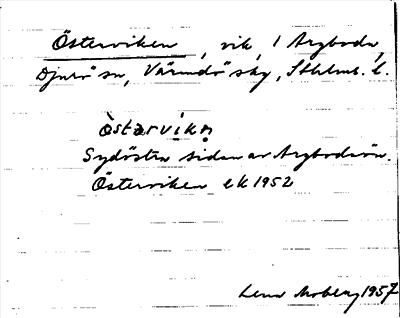 Österviken, vik, 1 Argboda,
Djurö sn, Värmdö skg, Sthlms. l.
östərvikn
Sydöstra sidan av Argbodaön.
Österviken ek 1952
Lena Moberg 1957